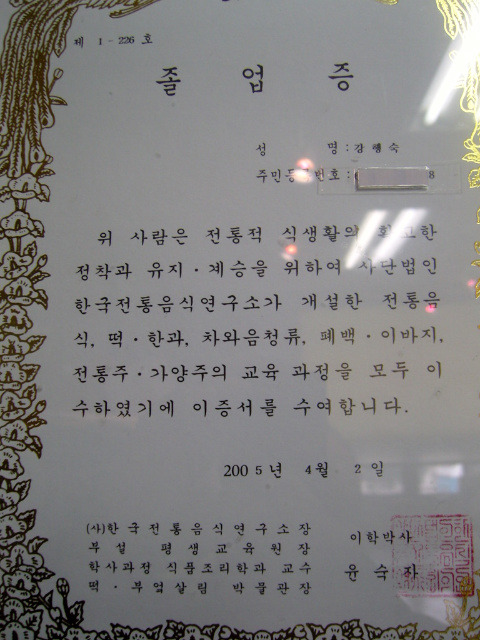 제 1-226 호
졸 업 증
성 명 : 강 행 숙
주민등록번호 : 8
위 사람은 전통적 식생활의 확고한
정착과 유지·계승을 위하여 사단법인
한국전통음식연구소가 개설한 전통음
식, 떡·한과, 차와음청류, 폐백·이바지,
전통주·가양주의 교육 과정을 모두 이
수하였기에 이증서를 수여합니다.
2005년 4월 2일
(사)한국전통음식연구소장
부설 평생교육원장
학사과정 식품조리학과 교수
떡·부엌살림 박물관장
이학박사
윤숙자